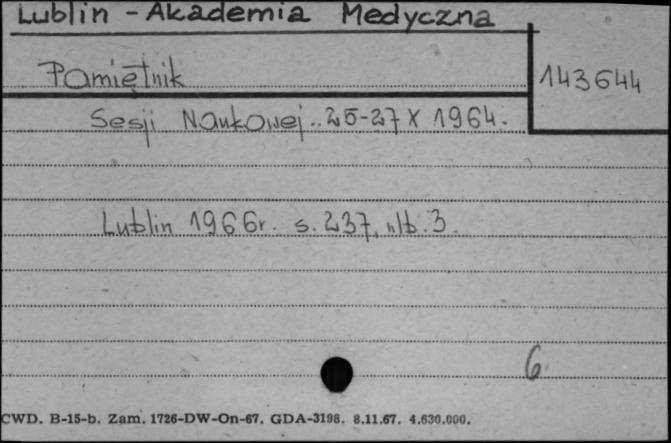 Lublin - Akademia Medyczna
Pamiętnik
143644
Sesji Naukowej .. 25-27 X 1964.
Lublin 1966r. s. 237, nlb. 3.
6
CWD. B-15-b. Zam. 1726-DW-On-67. GDA-3198. 8.11.67. 4.630.000.